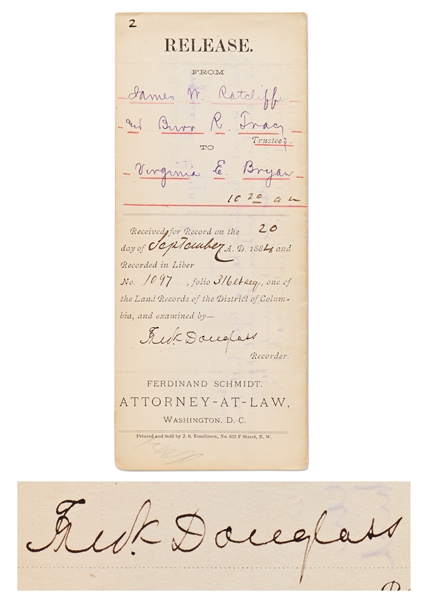 2
RELEASE.
FROM
James W. Ratcliffe
and Burr R. Tracy
Trustees
TO
Virginia E. Bryan
10 20 a m
Received for Record on the 20
day of September A. D. 1884 and
Recorded in Liber
No. 1097, folio 316 et seq., one of
the Land Records of the District of Colum-
bia, and examined by—
Fredk Douglass
Recorder.
FERDINAND SCHMIDT,
ATTORNEY-AT-LAW,
WASHINGTON, D. C.
Printed and Sold by J. S. Tomlinson, No. 632 F Street, N. W.
Fredk Douglass